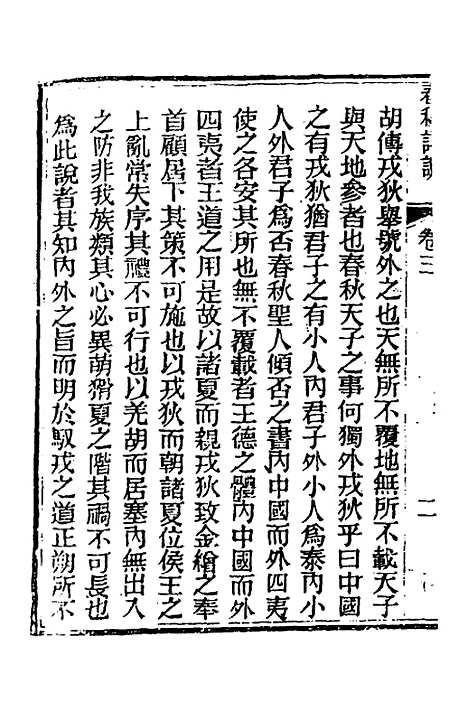 胡傳戎狄舉號外之也天無所不覆地無所不載天子
與天地參者也春秋天子之事何獨外戎狄乎曰中國
之有戎狄猶君子之有小人內君子外小人爲泰內小
人外君子爲否春秋聖人傾否之書內中國而外四夷
使之各安其所也無不覆載者王德之體內中國而外
四夷者王道之用是故以諸夏而親戎狄致金繒之奉
首顧居下其策不可施也以戎狄而朝諸夏位侯王之
上亂常失序其禮不可行也以羌胡而居塞內無出入
之防非我族類其心必異萌猾夏之階其禍不可長也
爲此說者其知內外之旨而明於馭戎之道正朔所不
卷三